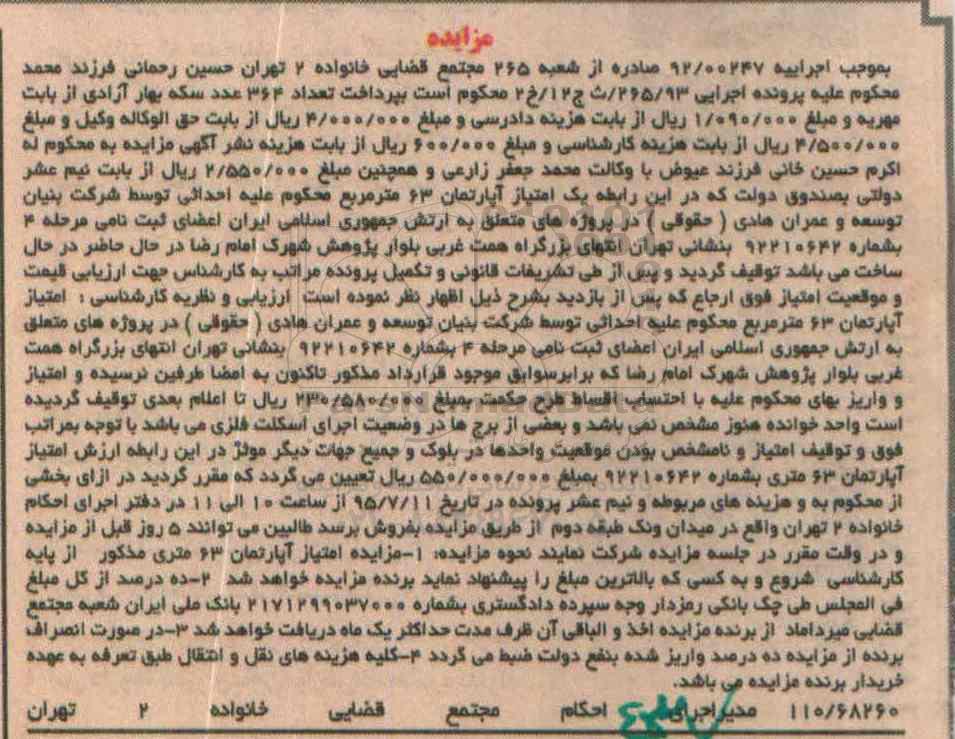 مزایده
بموجب اجراییه ۹۲/۰۰۲۴۷ صادره از شعبه ۲۶۵ مجتمع قضایی خانواده ۲ تهران حسین رحمانی فرزند محمد
محکوم علیه پرونده اجرایی ۲۶۵/۹۳/ث ج۱۲/خ۲ محکوم است بپرداخت تعداد ۳۶۴ عدد سکه بهار آزادی از بابت
مهریه و مبلغ ۱/۰۹۰/۰۰۰ ریال از بابت هزینه دادرسی و مبلغ ۴/۰۰۰/۰۰۰ ریال از بابت حق الوکاله وکیل و مبلغ
۴/۵۰۰/۰۰۰ ریال از بابت هزینه کارشناسی و مبلغ ۶۰۰/۰۰۰ ریال از بابت هزینه نشر آگهی مزایده به محکوم له
اکرم حسین خانی فرزند عیوض با وکالت محمد جعفر زارعی و همچنین مبلغ ۲/۵۵۰/۰۰۰ ریال از بابت نیم عشر
دولتی بصندوق دولت که در این رابطه یک امتیاز آپارتمان ۶۳ مترمربع محکوم علیه احداثی توسط شرکت بنیان
توسعه و عمران هادی ( حقوقی ) در پروژه های متعلق به ارتش جمهوری اسلامی ایران اعضای ثبت نامی مرحله ۴
بشماره ۹۲۲۱۰۶۴۲ بنشانی تهران انتهای بزرگراه همت غربی بلوار پژوهش شهرک امام رضا در حال حاضر در حال
ساخت می باشد توقیف گردید و پس از طی تشریفات قانونی و تکمیل پرونده مراتب به کارشناس جهت ارزیابی قیمت
و موقعیت امتیاز فوق ارجاع که پس از بازدید بشرح ذیل اظهار نظر نموده است ارزیابی و نظریه کارشناسی : امتیاز
آپارتمان ۶۳ مترمربع محکوم علیه احداثی توسط شرکت بنیان توسعه و عمران هادی ( حقوقی ) در پروژه های متعلق
به ارتش جمهوری اسلامی ایران اعضای ثبت نامی مرحله ۴ بشماره ۹۲۲۱۰۶۴۲ بنشانی تهران انتهای بزرگراه همت
غربی بلوار پژوهش شهرک امام رضا که برابرسوابق موجود قرارداد مذکور تاکنون به امضا طرفین نرسیده و امتیاز
و واریز بهای محکوم علیه با احتساب اقساط طرح حکمت بمبلغ ۲۳۰/۵۸۰/۰۰۰ ریال تا اعلام بعدی توقیف گردیده
است واحد خوانده هنوز مشخص نمی باشد و بعضی از برج ها در وضعیت اجرای اسکلت فلزی می باشد با توجه بمراتب
فوق و توقیف امتیاز و نامشخص بودن موقعیت واحدها در بلوک و جمیع جهات دیگر موثر در این رابطه ارزش امتیاز
آپارتمان ۶۳ متری بشماره ۹۲۲۱۰۶۴۲ بمبلغ ۵۵۰/۰۰۰/۰۰۰ ریال تعیین می گردد که مقرر گردید در ازای بخشی
از محکوم به و هزینه های مربوطه و نیم عشر پرونده در تاریخ ۹۵/۷/۱۱ از ساعت ۱۰ الی ۱۱ در دفتر اجرای احکام
خانواده ۲ تهران واقع در میدان ونک طبقه دوم از طریق مزایده بفروش برسد طالبین می توانند ۵ روز قبل از مزایده
و در وقت مقرر در جلسه مزایده شرکت نمایند نحوه مزایده: ۱-مزایده امتیاز آپارتمان ۶۳ متری مذکور از پایه
کارشناسی شروع و به کسی که بالاترین مبلغ را پیشنهاد نماید برنده مزایده خواهد شد ۲-ده درصد از کل مبلغ
فی المجلس طی چک بانکی رمزدار وجه سپرده دادگستری بشماره ۲۱۷۱۲۹۹۰۳۷۰۰۰ بانک ملی ایران شعبه مجتمع
قضایی میرداماد از برنده مزایده اخذ و الباقی آن ظرف مدت حداکثر یک ماه دریافت خواهد شد ۳-در صورت انصراف
برنده از مزایده ده درصد واریز شده بنفع دولت ضبط می گردد ۴-کلیه هزینه های نقل و انتقال طبق تعرفه به عهده
خریدار برنده مزایده می باشد.
۱۱۰/۶۸۲۶۰ مدیراجرای احکام مجتمع قضایی خانواده ۲ تهران